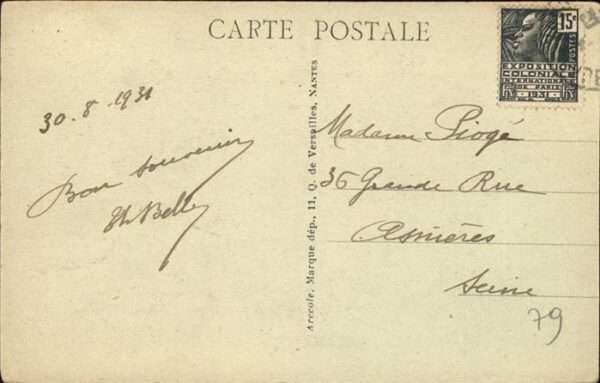 CARTE POSTALE
15c
POSTES
EXPOSITION
COLONIALE
INTERNATIONALE
DE PARIS
1931
30-8-1931
Bon souvenir
Th Belle
Arecole. Marque dép., 11, Q. de Versailles, NANTES
Madame Piogé
36 Grande Rue
Asnières
Seine
79